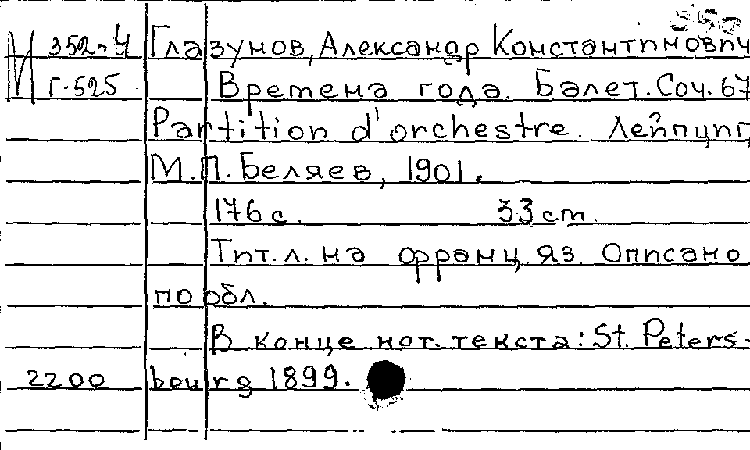 И 352-4 Глазунов, Александр Константинович
Г-525 Времена года. Балет. Соч. 67
Partition d'orchestre. Лейпциг,
М.П. Беляев, 1901.
176 с. 33 cm.
Тит. л. на франц. яз. Описано
по обл.
В конце нот. текста: St. Peters-
2200 bourg 1899.